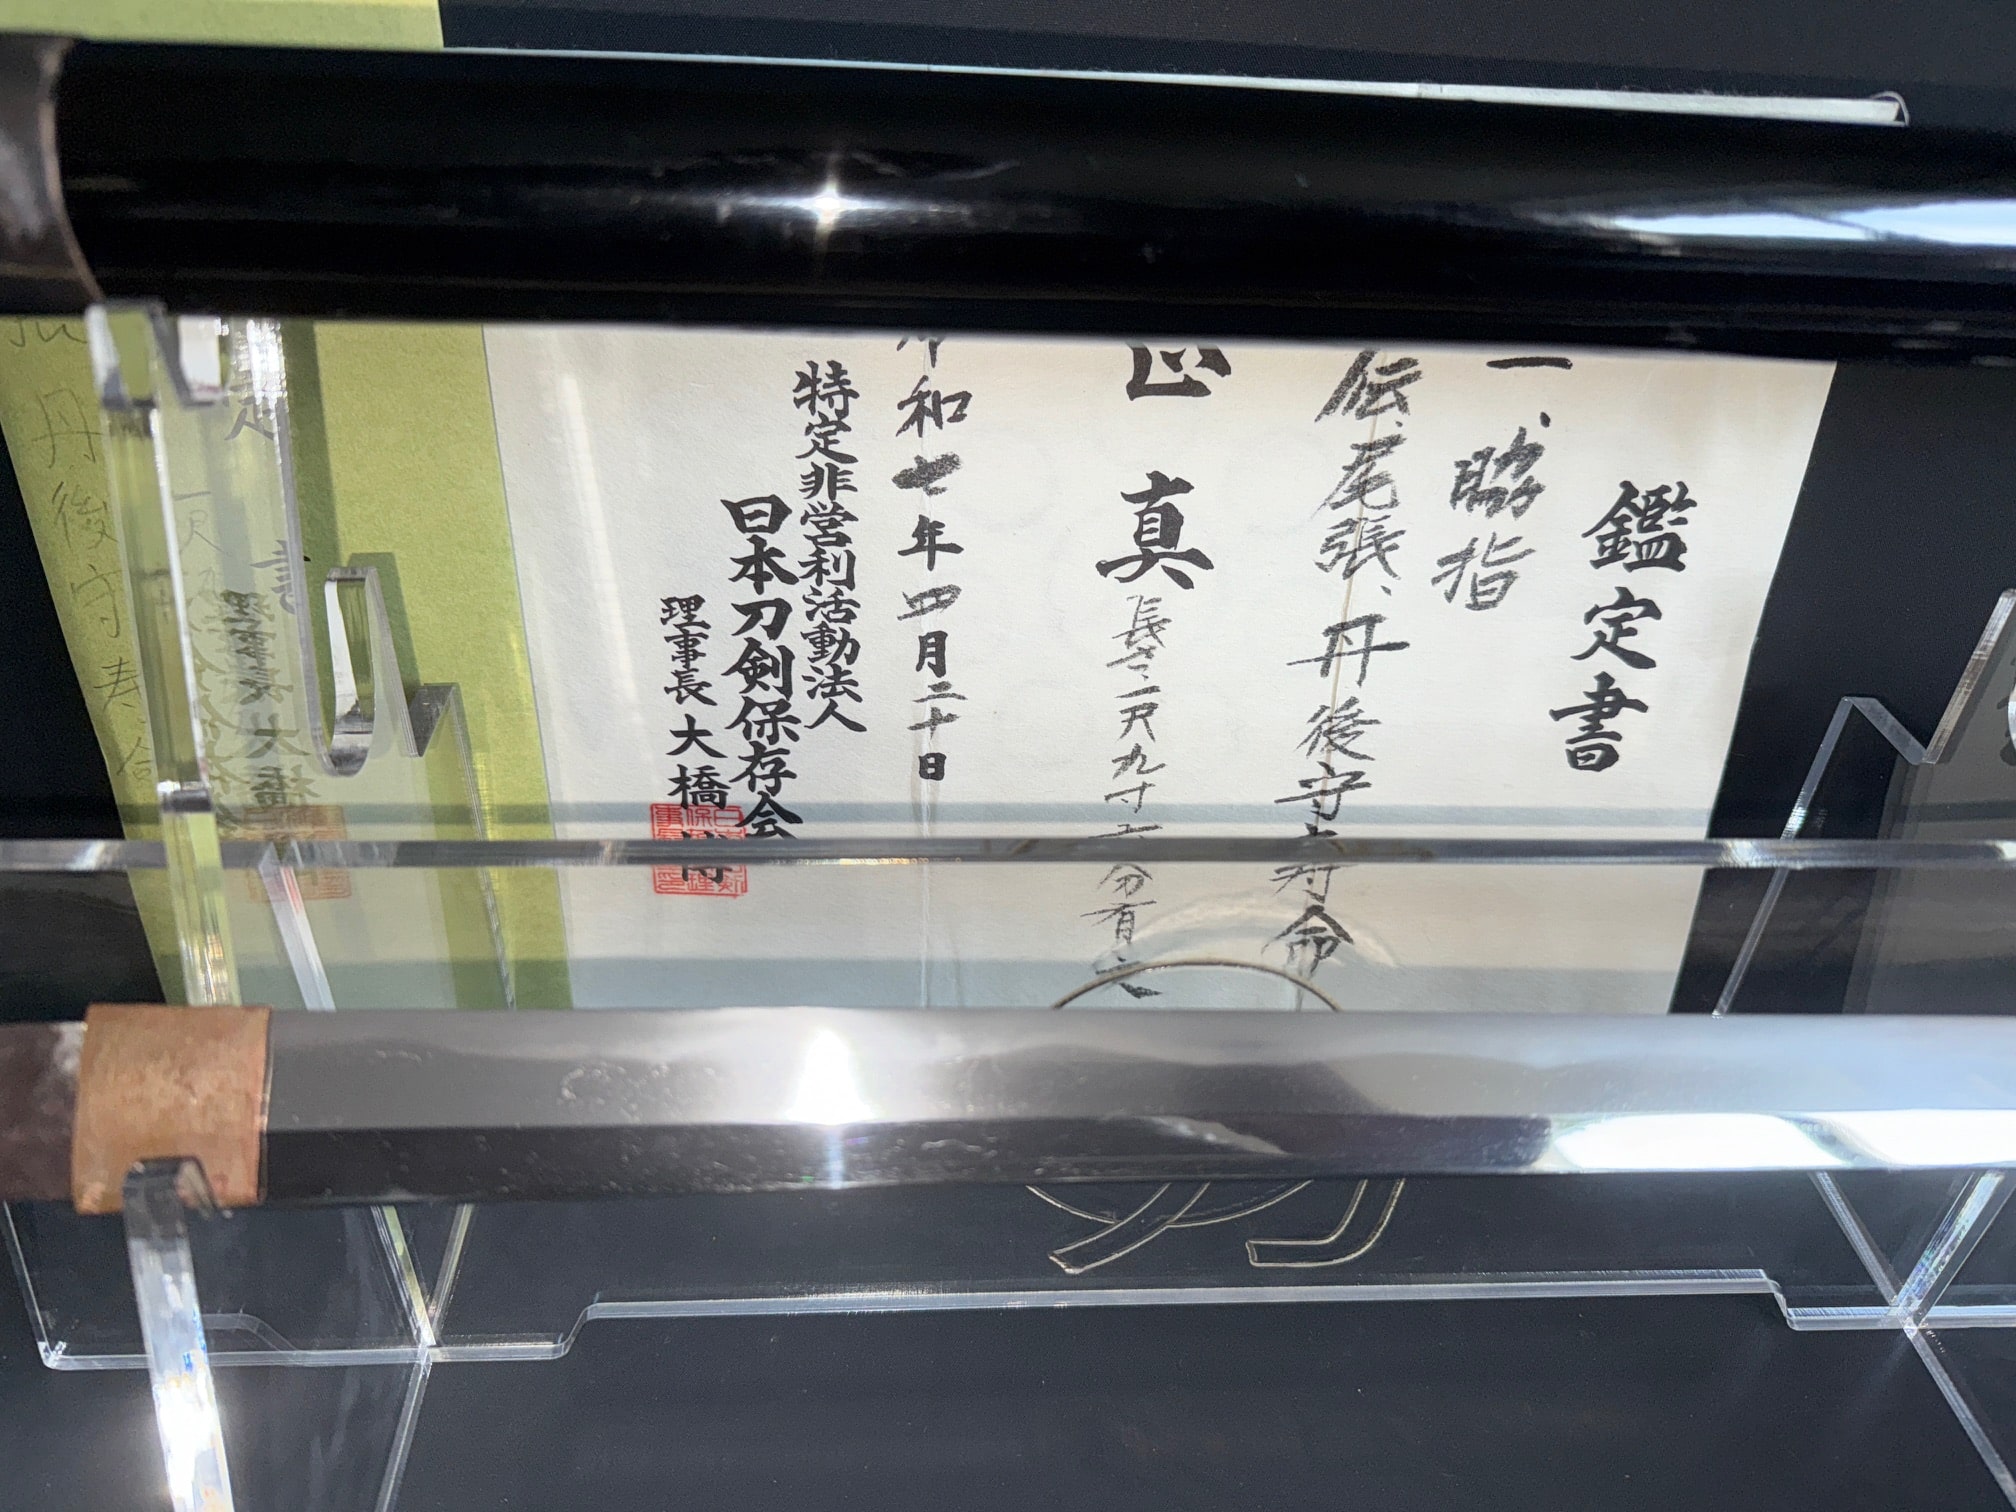 鑑定書
一、脇指
伝、尾張、丹後守寿命
正真
長サ一尺九寸六分有之
令和七年四月二十日
特定非営利活動法人
日本刀剣保存会
理事長 大橋
丹後守寿命